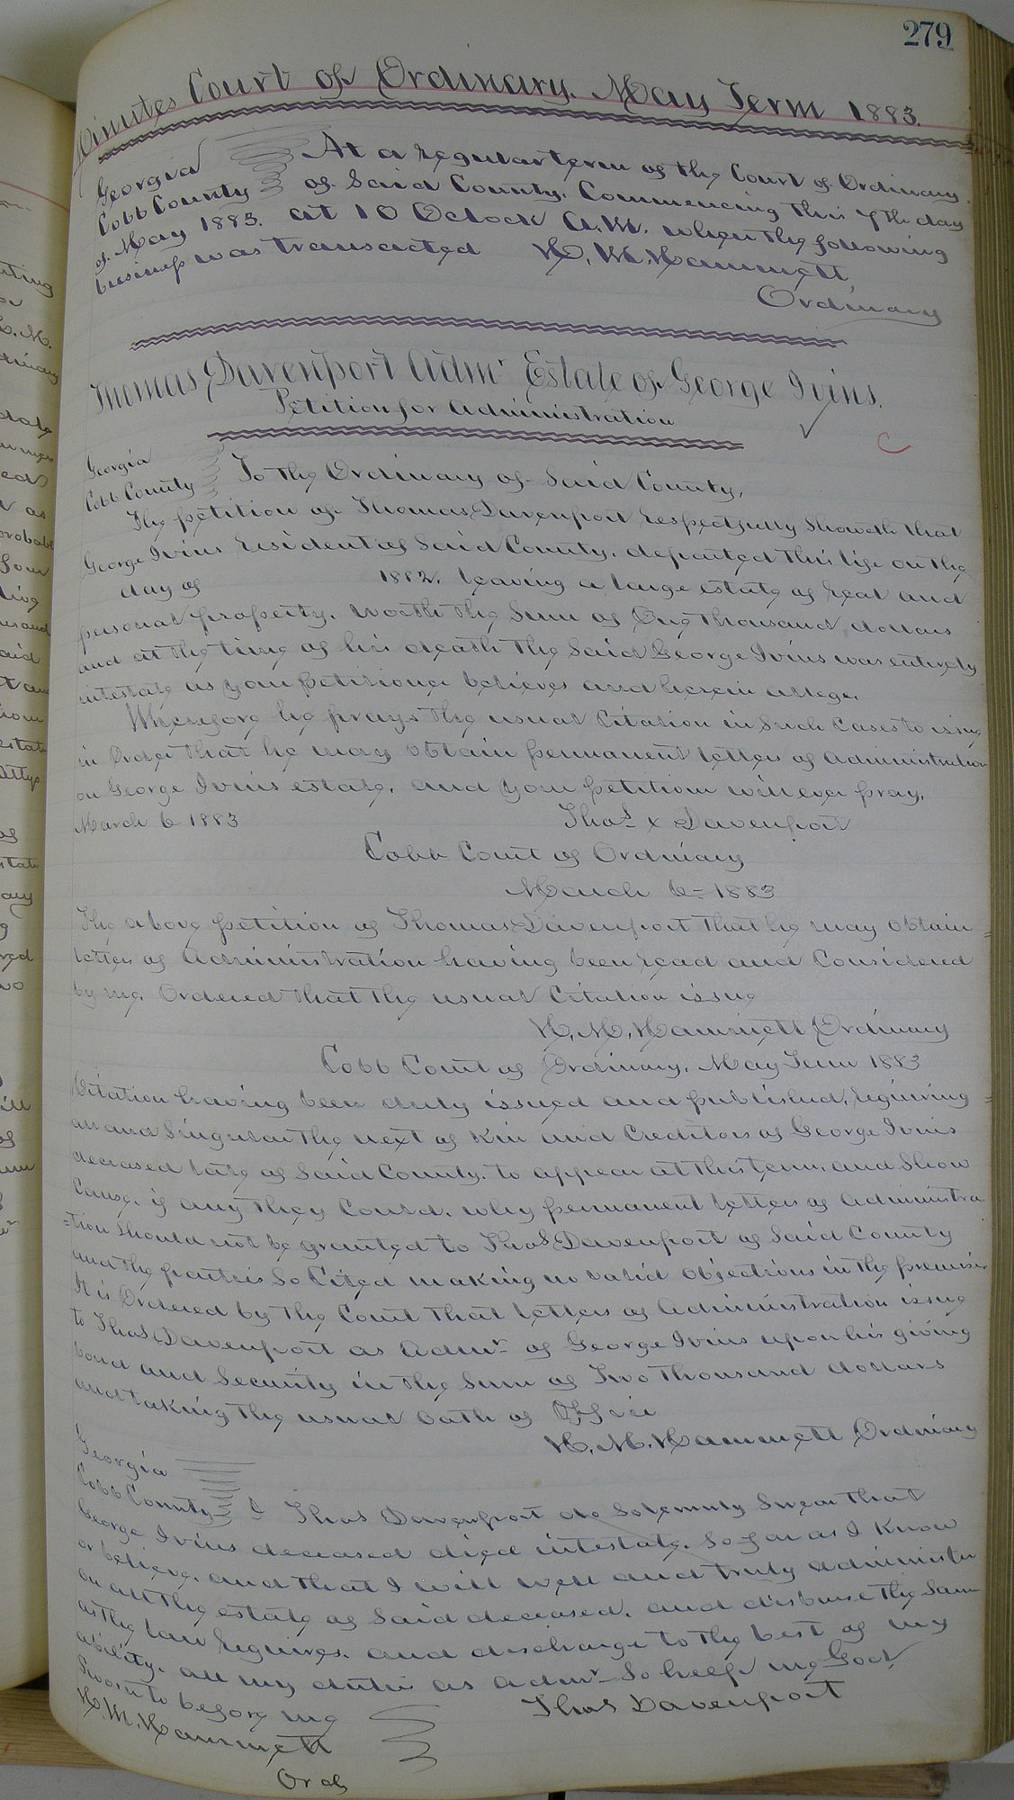 279
Minutes Court of Ordinary. May Term 1883.
Georgia
Cobb County
At a regular term of the Court of Ordinary
of Said County, Commencing this 7th day
of May 1883. at 10 Oclock A.M. when the following
business was transacted H. M. Hammett
Ordinary
Thomas Davenport Admr Estate of George Ivins.
Petition for Administration
Georgia
Cobb County
To the Ordinary of Said County,
The petition of Thomas Davenport respectfully Showeth that
George Ivins resident of Said County, departed this life on the
day of 1882. leaving a large estate of real and
personal property, worth the Sum of One thousand dollars
and at the time of his death the Said George Ivins was entirely
intestate as your petitioner believes and herein alleges.
Wherefore he prays the usual Citation in Such Cases to issue
in Order that he may obtain permanent letters of administration
on George Ivins estate, and your petitioner will ever pray.
March 6 1883 Thos x Davenport
Cobb Court of Ordinary
March 6 - 1883
The above petition of Thomas Davenport that he may obtain
letters of Administration having been read and Considered
by me. Ordered that the usual Citation issue
H. M. Hammett Ordinary
Cobb Court of Ordinary, May Term 1883
Citation having been duly issued and published, requiring
all and Singular the next of Kin and Creditors of George Ivins
deceased late of Said County, to appear at this term, and Show
Cause, if any they Could, why permanent letters of Administra
=tion Should not be granted to Thos Davenport of Said County
and the parties So Cited making no valid Objections in the premises
It is Ordered by the Court that letters of Administration issue
to Thos Davenport as Admr of George Ivins upon his giving
bond and Security in the Sum of Two thousand dollars
and taking the usual Oath of Office
H. M. Hammett Ordinary
Georgia
Cobb County
I Thos Davenport do Solemnly Swear that
George Ivins deceased died intestate, So far as I know
or believe, and that I will well and truly administer
on all the estate of Said deceased, and disburse the Same
as the law requires, and discharge to the best of my
ability, all my duties as Admr So help me God
Sworn to before me Thos Davenport
H. M. Hammett
Ord